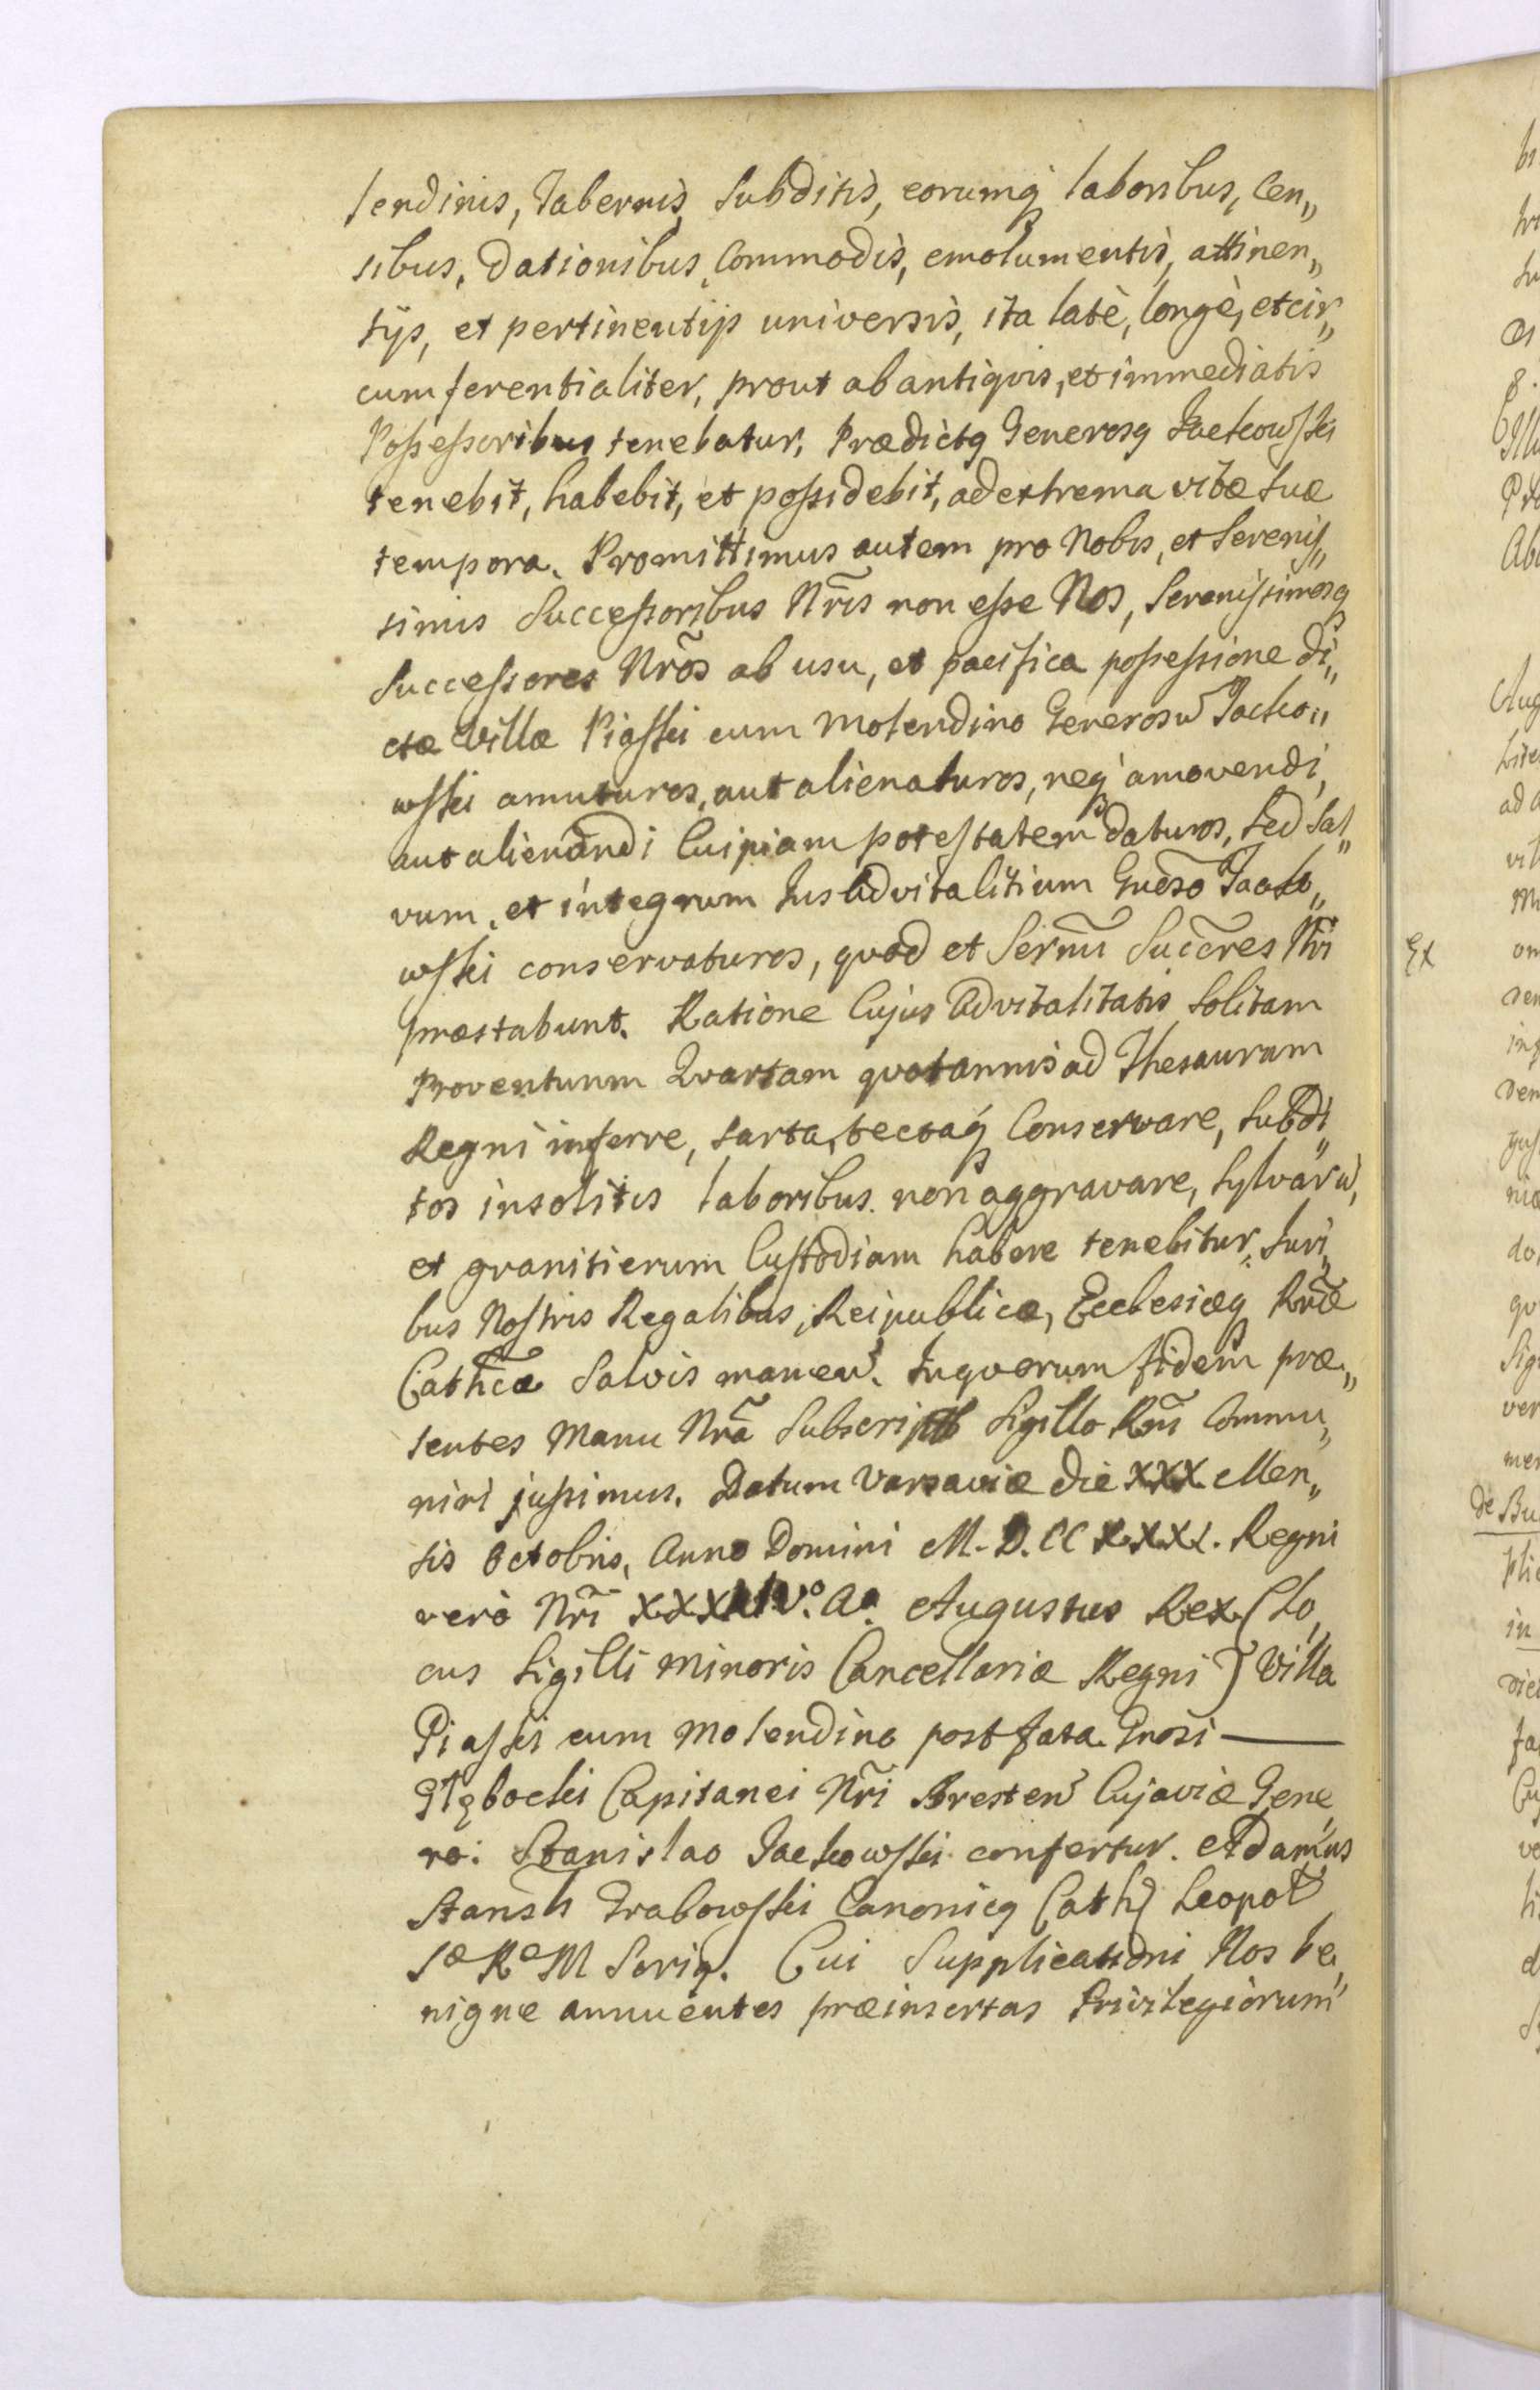 lendinis, Tabernis, Subditis, eorumq́ laboribus, Cen„
sibus, Dationibus, Commodis, emolumentis, attinen„
tijs, et pertinentijs universis, ita latè, longè, et cir„
cumferentialiter, prout ab antiqvis, et immediatis
Possessoribus tenebatur, Prædictq Generosq Jackowski
tenebit, habebit, et possidebit, ad extrema vitæ suæ
tempora. Promittimus autem pro Nobis, et Serenis„
simis Successoribus Nr̃is non esse Nos, Serenissimosq
Successores Nrõs ab usu, et pacifica possessione di„
ctæ Villæ Piaski cum Molendino Generosũ Jacko„
wski amuturos, aut alienaturos, neq́ amovendi,
aut alienandi Cuipiam potestatem daturos, Sed Sal„
vum, et integrum Jus Advitalitium Gnẽso Jacko„
wski conservaturos, qvod et Sermĩ Succ̃res Nri
præstabunt. Ratione Cujus Advitalitatis Solitam
Proventuum Qvartam qvotannis ad Thesaurum
Regni inferre, sarta, tectaq́ Conservare, Subdi„
tos insolitis laboribus non aggravare, Sylvarũ,
et granitierum Custodiam habere tenebitur, Juri„
bus Nostris Regalibus, Reipublicæ, Ecclesiæq Rnæ̃
Cathcæ̃ Salvis maneñ. Inqvorum fidem præ„
sentes Manu Nrã Subscript Sigillo Rnĩ Commu„
niri jussimus. Datum Varsaviæ die XXX Men„
sis Octobris, Anno Domini M. D. CC XXXI. Regni
verò Nrĩ XXXIV.º Aº. Augustus Rex (Lo„
cus Sigilli Minoris Cancellariæ Regni) Villa
Piaski cum Molendino post fata Gnosi —
Głębocki Capitanei Nr̃i Bresteñ Cujaviæ Gene„
ro: Stanislao Jackowski confertur. Adamus
Stansls Grabowski Canonicq Cath) Leopol
Sæ Ræ M Seriq. Cui Supplicationi Nos be„
nigne annuentes præinsertas Privilegiorum